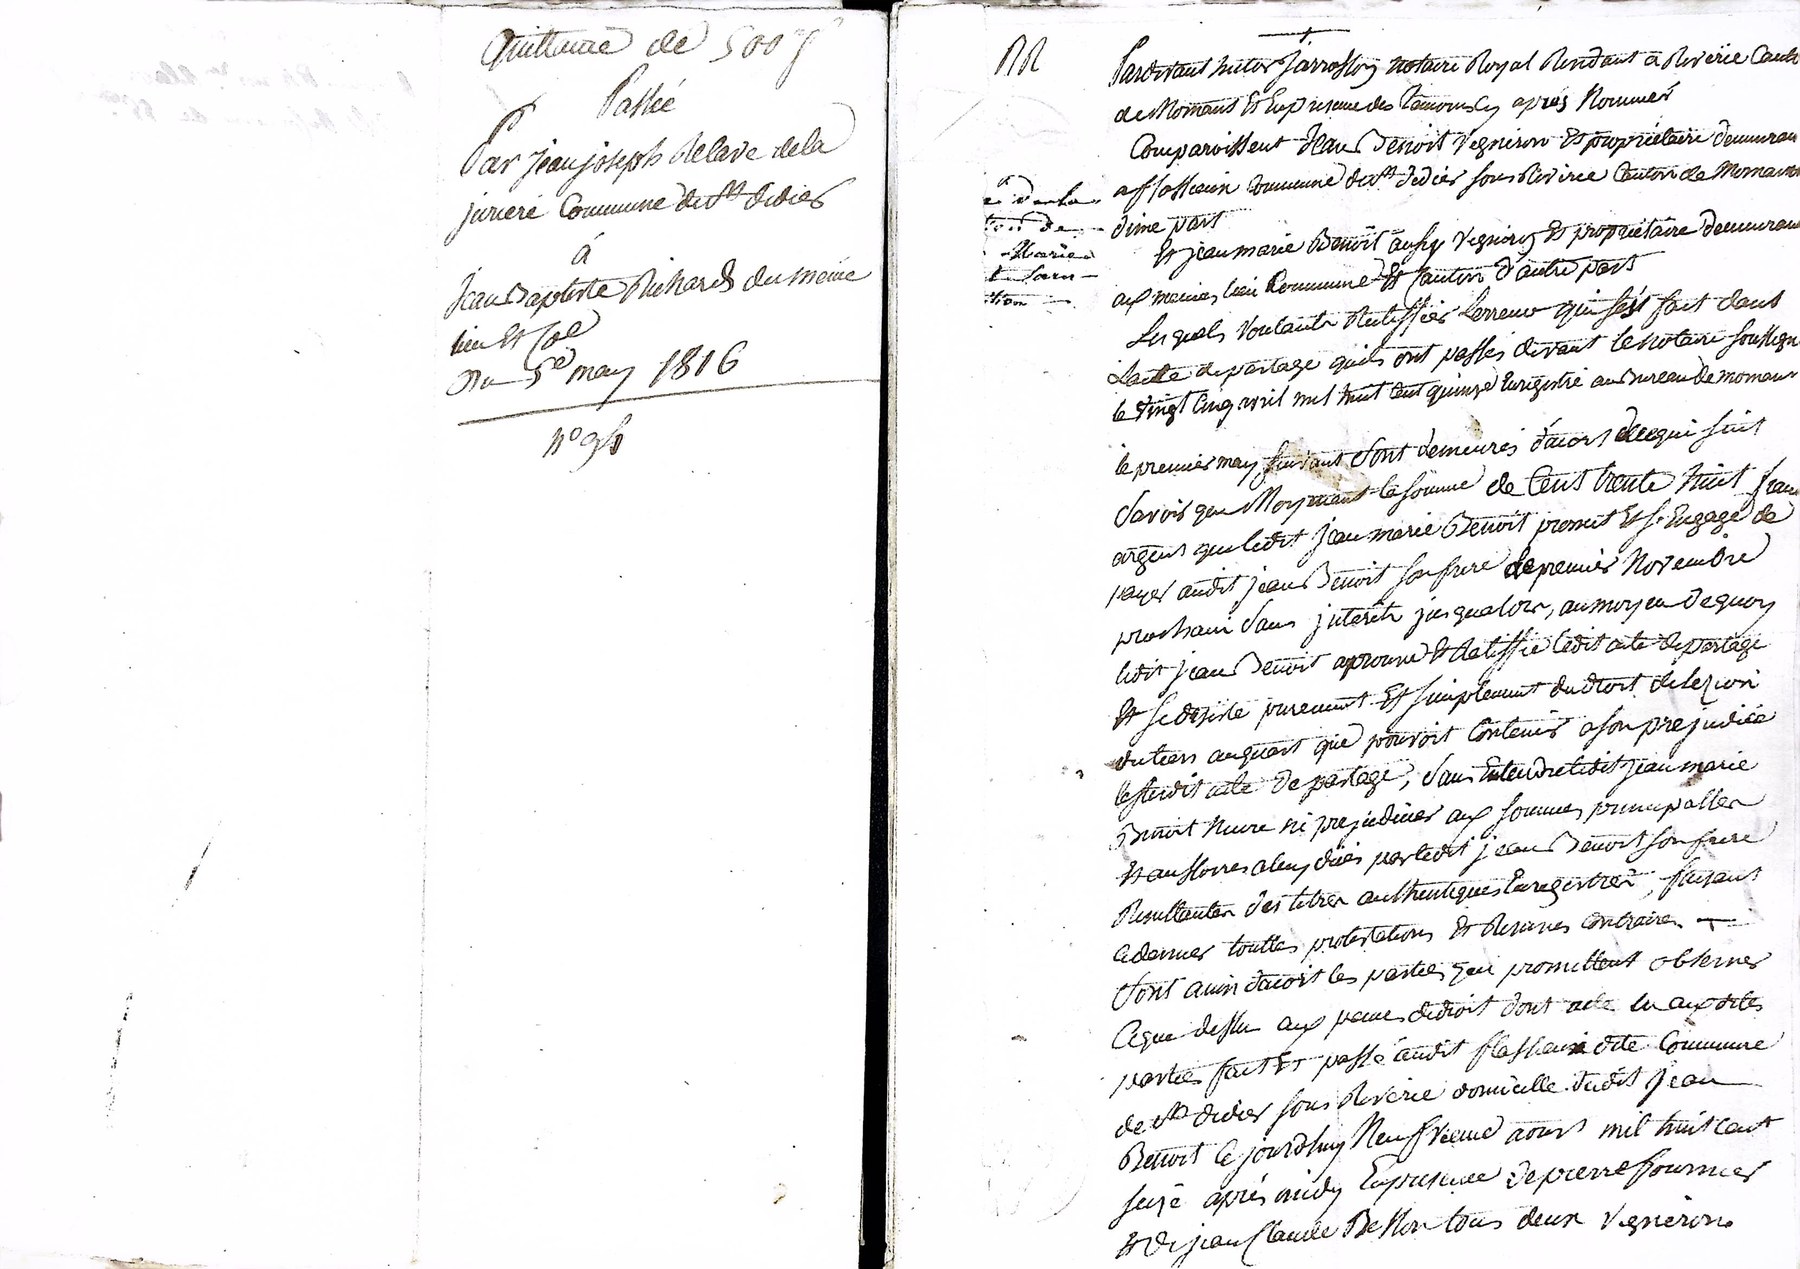 Quittance de 500 f
Passé
Par jean joseph delave dela
juriere Commune de St didier
à
Jean Baptiste Richard du meme
lieu Et
Du 5e may 1816
n° 95
Pardevant me jarrosson notaire Royal Residant a Riverie Canton
de Mornant Et En presence des temoins Cy après Nommés
Comparoissent Jean Benoit Vigneron Et propriétaire demeurant
a flassieux Commune de St didier sous Riverie Canton de Mornant
d'une part
Et jean marie Benoit aussy vigneron Et propriétaire demeurant
aux memes lieu Commune Et Canton d'autre part
Les quels voulants Rectiffier L'erreur qui s'est fait dans
L'acte de partage quils ont passés devant le notaire soussigné
le vingt Cinq avril mil huit Cent quinze Enregistré au Bureau de mornant
le premier may suivant Sont demeurés d'acort de ce qui suit
Savoir que Moyenant la somme de Cent trente huit francs
argent que ledit jean marie Benoit promet Et s'Engage de
payer audit jean Benoit son frere le premier Novembre
prochain Sans jnterêts jusqualors, au moyen de quoy
ledit jean Benoit aprouve Et Ratiffie ledit acte de partage
Et se desiste purement Et simplement du droit de lezion
du tiers au quart que pouvoit Contenir a son prejudice
le susdit acte de partage, sans Entendre ledit jean marie
Benoit nuire ni prejudicier aux sommes principalles
Et accessoires a luy dües par ledit jean Benoit son frere
Resultantes des titres authentiques Enregistrés, faisant
ce dernier touttes protestations Et Reserves Contraires
Sont ainsi d'acort les parties qui promettent observer
Ce que dessus aux peines de droit dont acte lu aux dites
parties fait Et passé audit flassieux dite Commune
de St didier sous Riverie domicille dudit jean
Benoit Ce jourdhuy Neuffvieme aoust mil huit cent
seize après midy En presence de pierre fournier
Et de jean Claude Besson tous deux vignerons